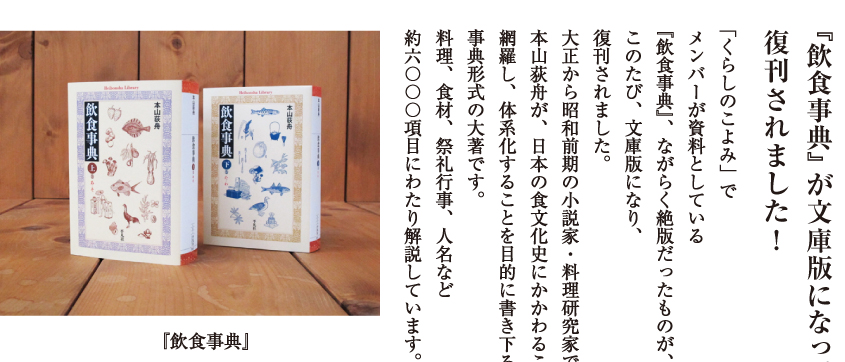 『飲食事典』が文庫版になっ
復刊されました！
「くらしのこよみ」で
メンバーが資料としている
『飲食事典』、ながらく絶版だったものが、
このたび、文庫版になり、
復刊されました。
大正から昭和前期の小説家・料理研究家で
本山荻舟が、日本の食文化史にかかわるこ
網羅し、体系化することを目的に書き下ろ
事典形式の大著です。
料理、食材、祭礼行事、人名など
約六〇〇〇項目にわたり解説しています。
Heibonsha Library
本山荻舟
飲食事典
上
Heibonsha Library
本山荻舟
飲食事典
下
『飲食事典』